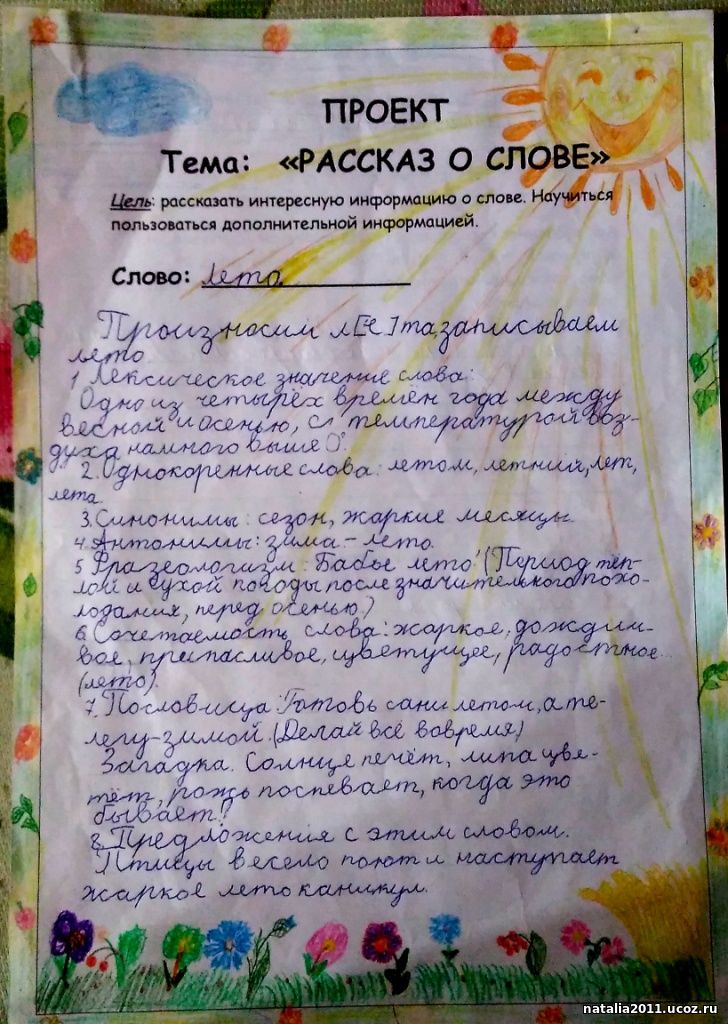 ПРОЕКТ
Тема: «РАССКАЗ О СЛОВЕ»
Цель: рассказать интересную информацию о слове. Научиться
пользоваться дополнительной информацией.
Слово: лето.
Произносим л['е]та, записываем
лето.
1. Лексическое значение слова:
Одно из четырёх времён года между
весной и осенью, с температурой воз-
духа намного выше 0°.
2. Однокоренные слова: летом, летний, лет,
лета.
3. Синонимы: сезон, жаркие месяцы.
4. Антонимы: зима - лето.
5 Фразеологизм: Бабье лето. (Период теп-
лой и сухой погоды после значительного похо-
лодания, перед осенью.)
6. Сочетаемость слова: жаркое, дождли-
вое, припасливое, цветущее, радостное...
(лето).
7. Пословица: Готовь сани летом, а те-
легу-зимой. (Делай всё вовремя)
Загадка. Солнце печёт, липа цве-
тёт, рожь поспевает, когда это
бывает?
8. Предложения с этим словом.
Птицы весело поют и наступает
жаркое лето каникул.
natalia2011.ucoz.ru